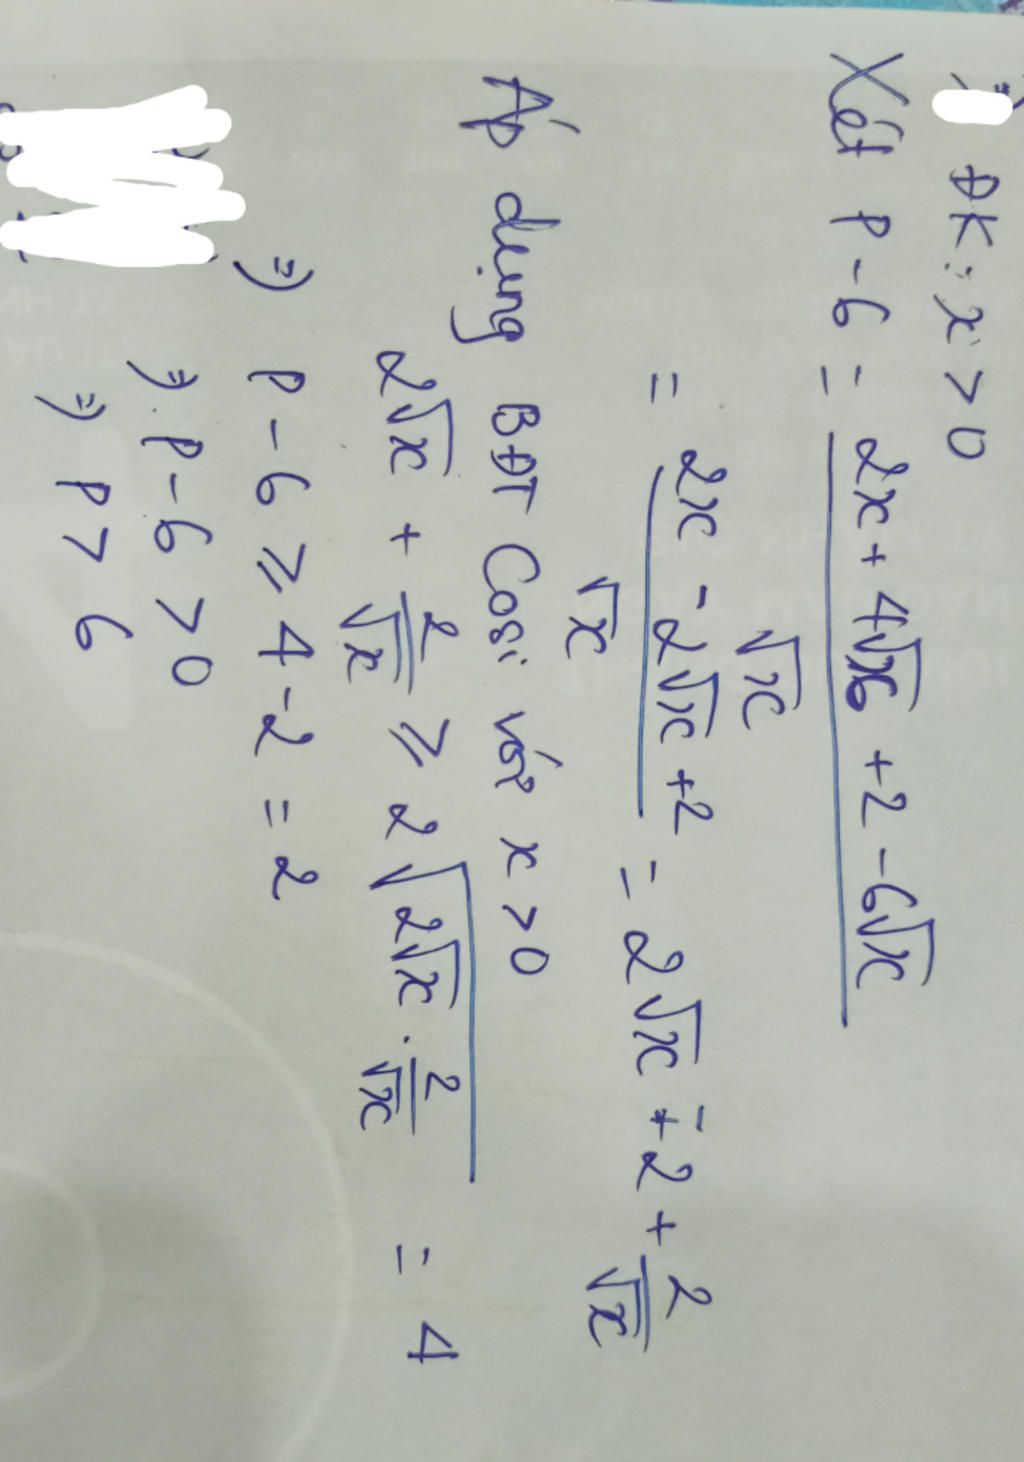 ĐK: x > 0
Xét P - 6 = (2x + 4√x + 2 - 6√x) / √x
= (2x - 2√x + 2) / √x = 2√x - 2 + 2/√x
Áp dụng BĐT Cosi với x > 0
2√x + 2/√x ≥ 2√(2√x · 2/√x) = 4
⇒ P - 6 ≥ 4 - 2 = 2
⇒ P - 6 > 0
⇒ P > 6